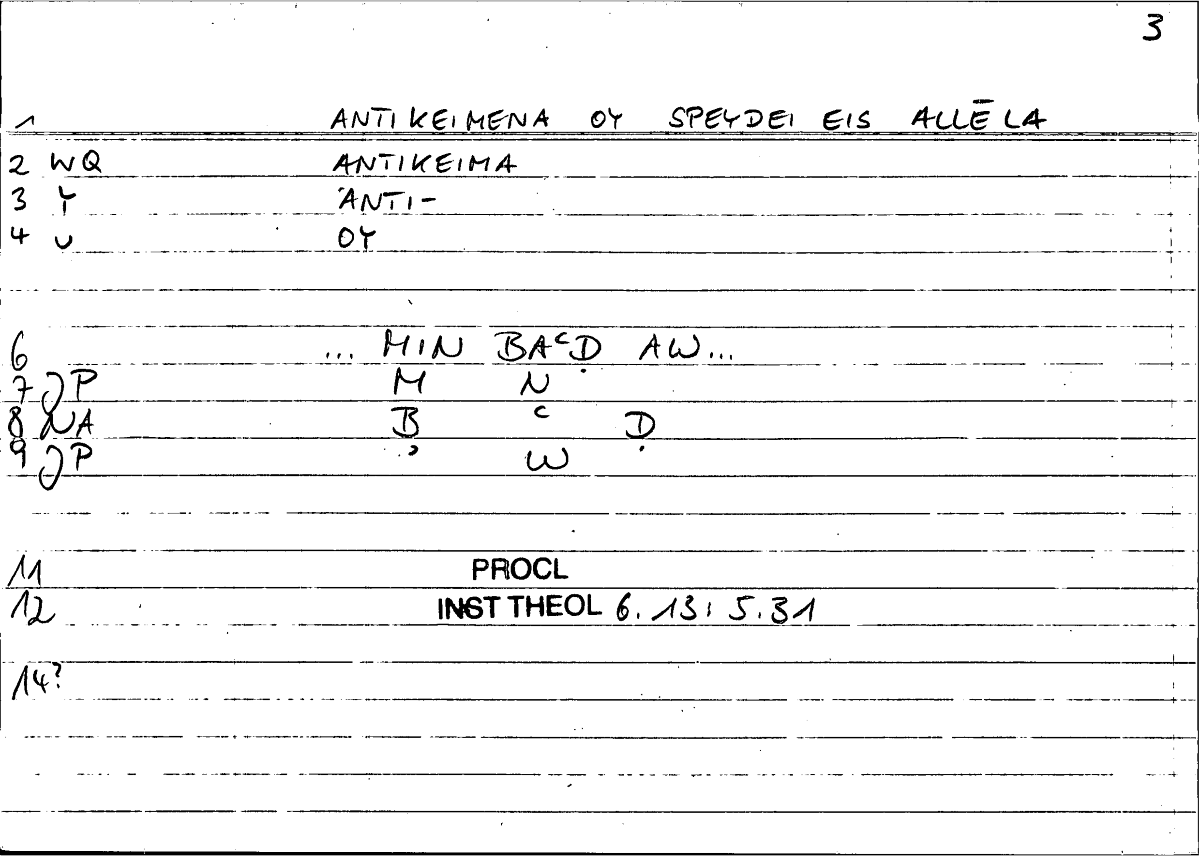 3
1 ANTIKEIMENA OY SPEYDEI EIS ALLĒLA
2 WQ ANTIKEIMA
3 Y ANTI-
4 U OY
6 ... MIN BAᶜḌ AW...
7 JP M N
8 NA B ᶜ Ḍ
9 JP W
11 PROCL
12 INST THEOL 6.13: 5.31
14?